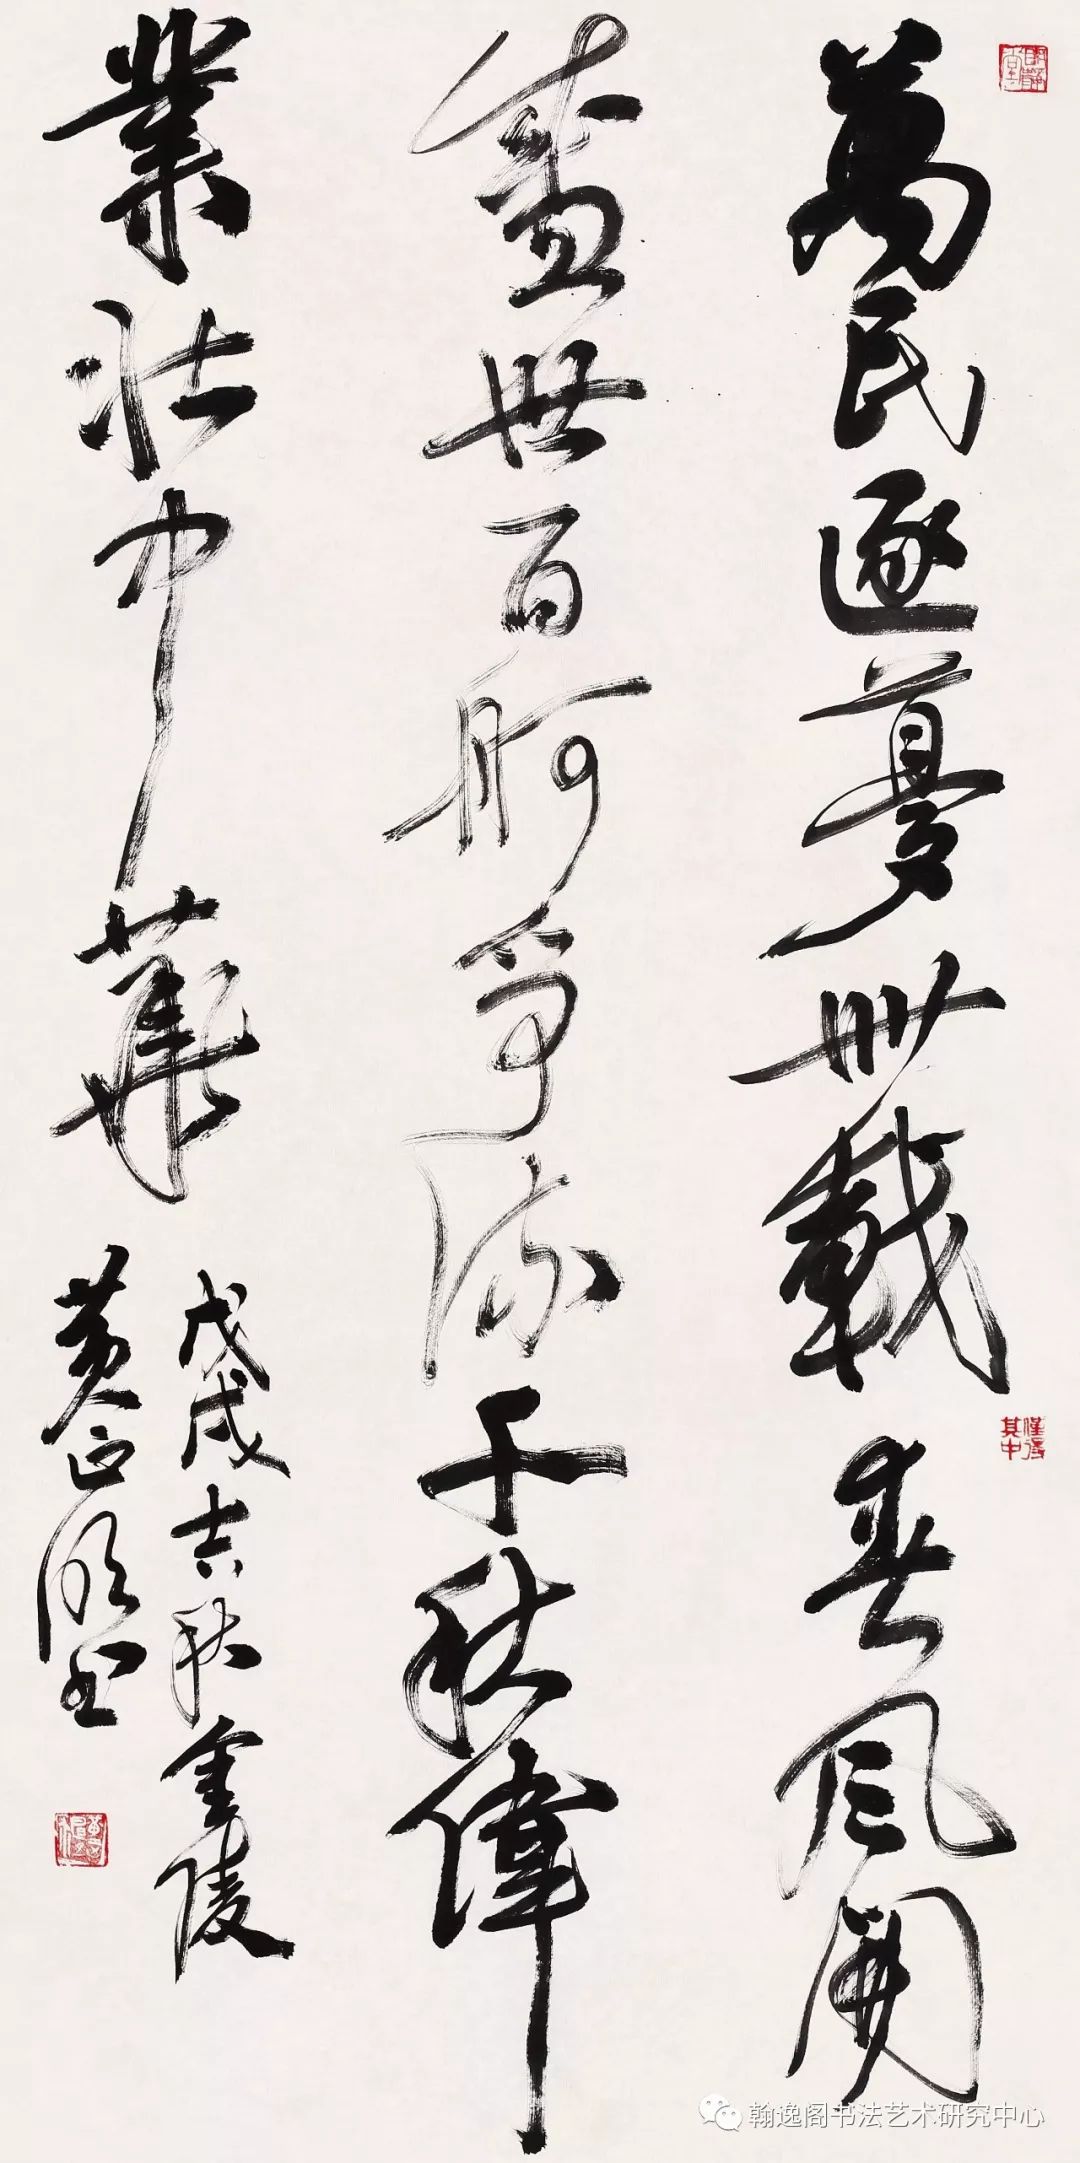 萬民逐夢卌載春風開
盛世百舸爭流千秋偉
業壯中華
戊戌吉秋金陵
黄正书
僅得其中
翰逸阁书法艺术研究中心